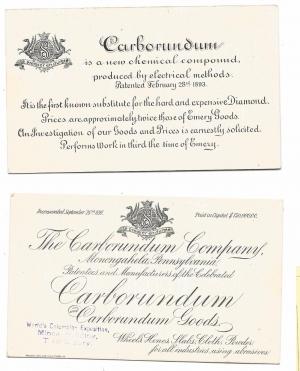 Carborundum
is a new chemical compound,
produced by electrical methods.
Patented February 28th 1893.
It is the first known substitute for the hard and expensive Diamond.
Prices are approximately twice those of Emery Goods.
An Investigation of our Goods and Prices is earnestly solicited.
Performs Work in third the time of Emery.
Incorporated, September 21st 1891. Paid in Capital $
The Carborundum Company,
Monongahela, Pennsylvania.
Patentees and Manufacturers of the Celebrated
Carborundum
and
Carborundum Goods.
World's Columbian Exposition,
Wheels, Hones, Slabs, Cloth, Powder
for all industries using abrasives.